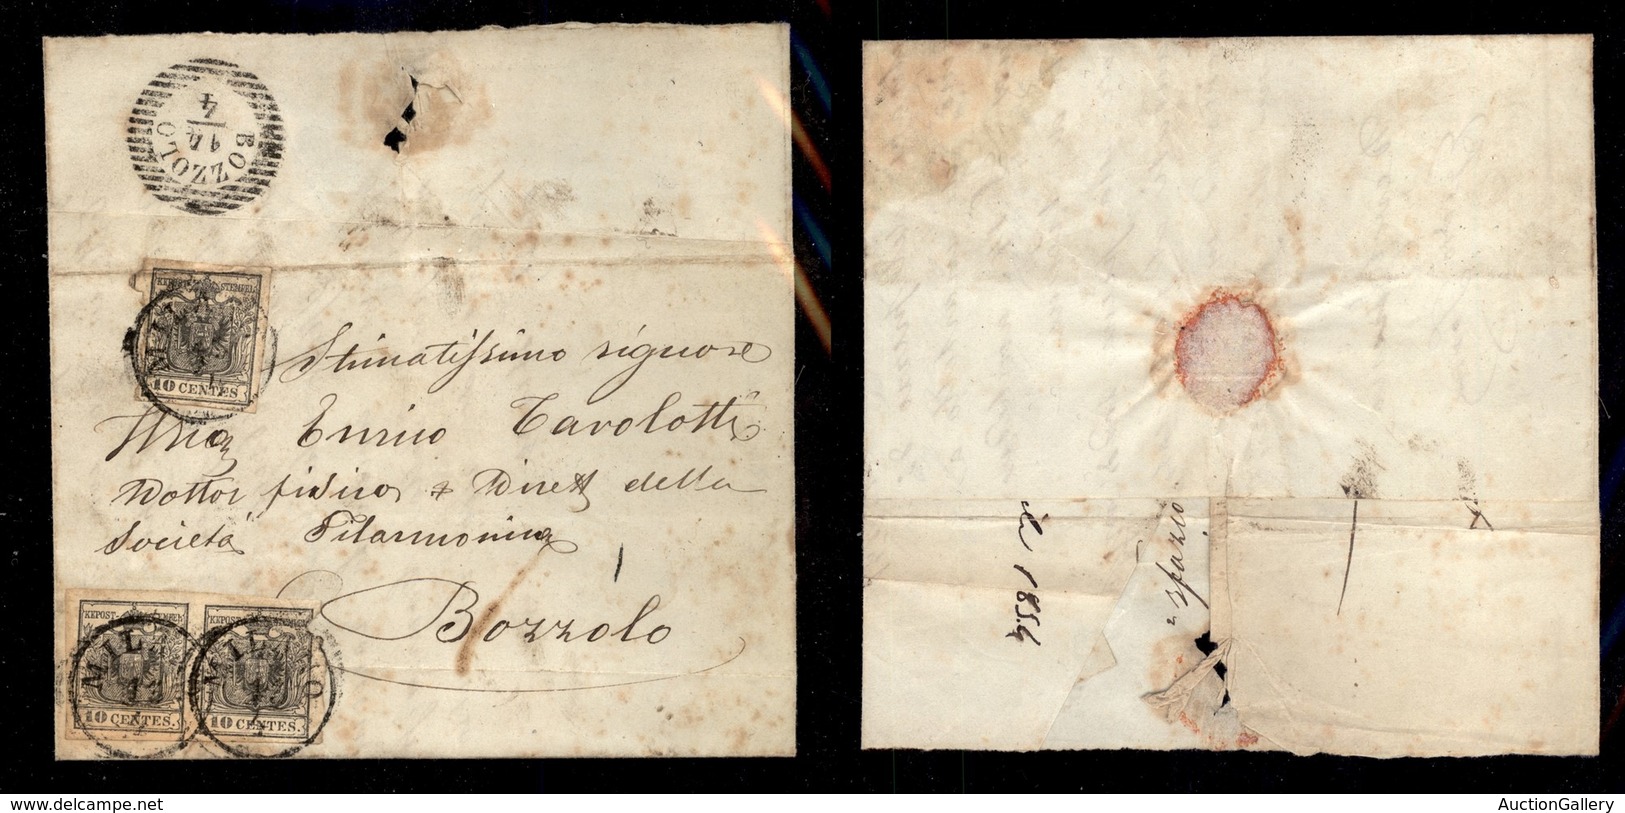 BOZZOLO
14
4
KKPOST-STEMPEL
MILANO
10 CENTES
Stimatissimo signore
Enrico Tavolotti
Dottor fisico Dirett della
Società Filarmonica
Bozzolo
KKPOST-STEMPEL
KKPOST-STEMPEL
MILANO
MILANO
10 CENTES.
10 CENTES.
1854
spazio
www.delcampe.net
AuctionGallery